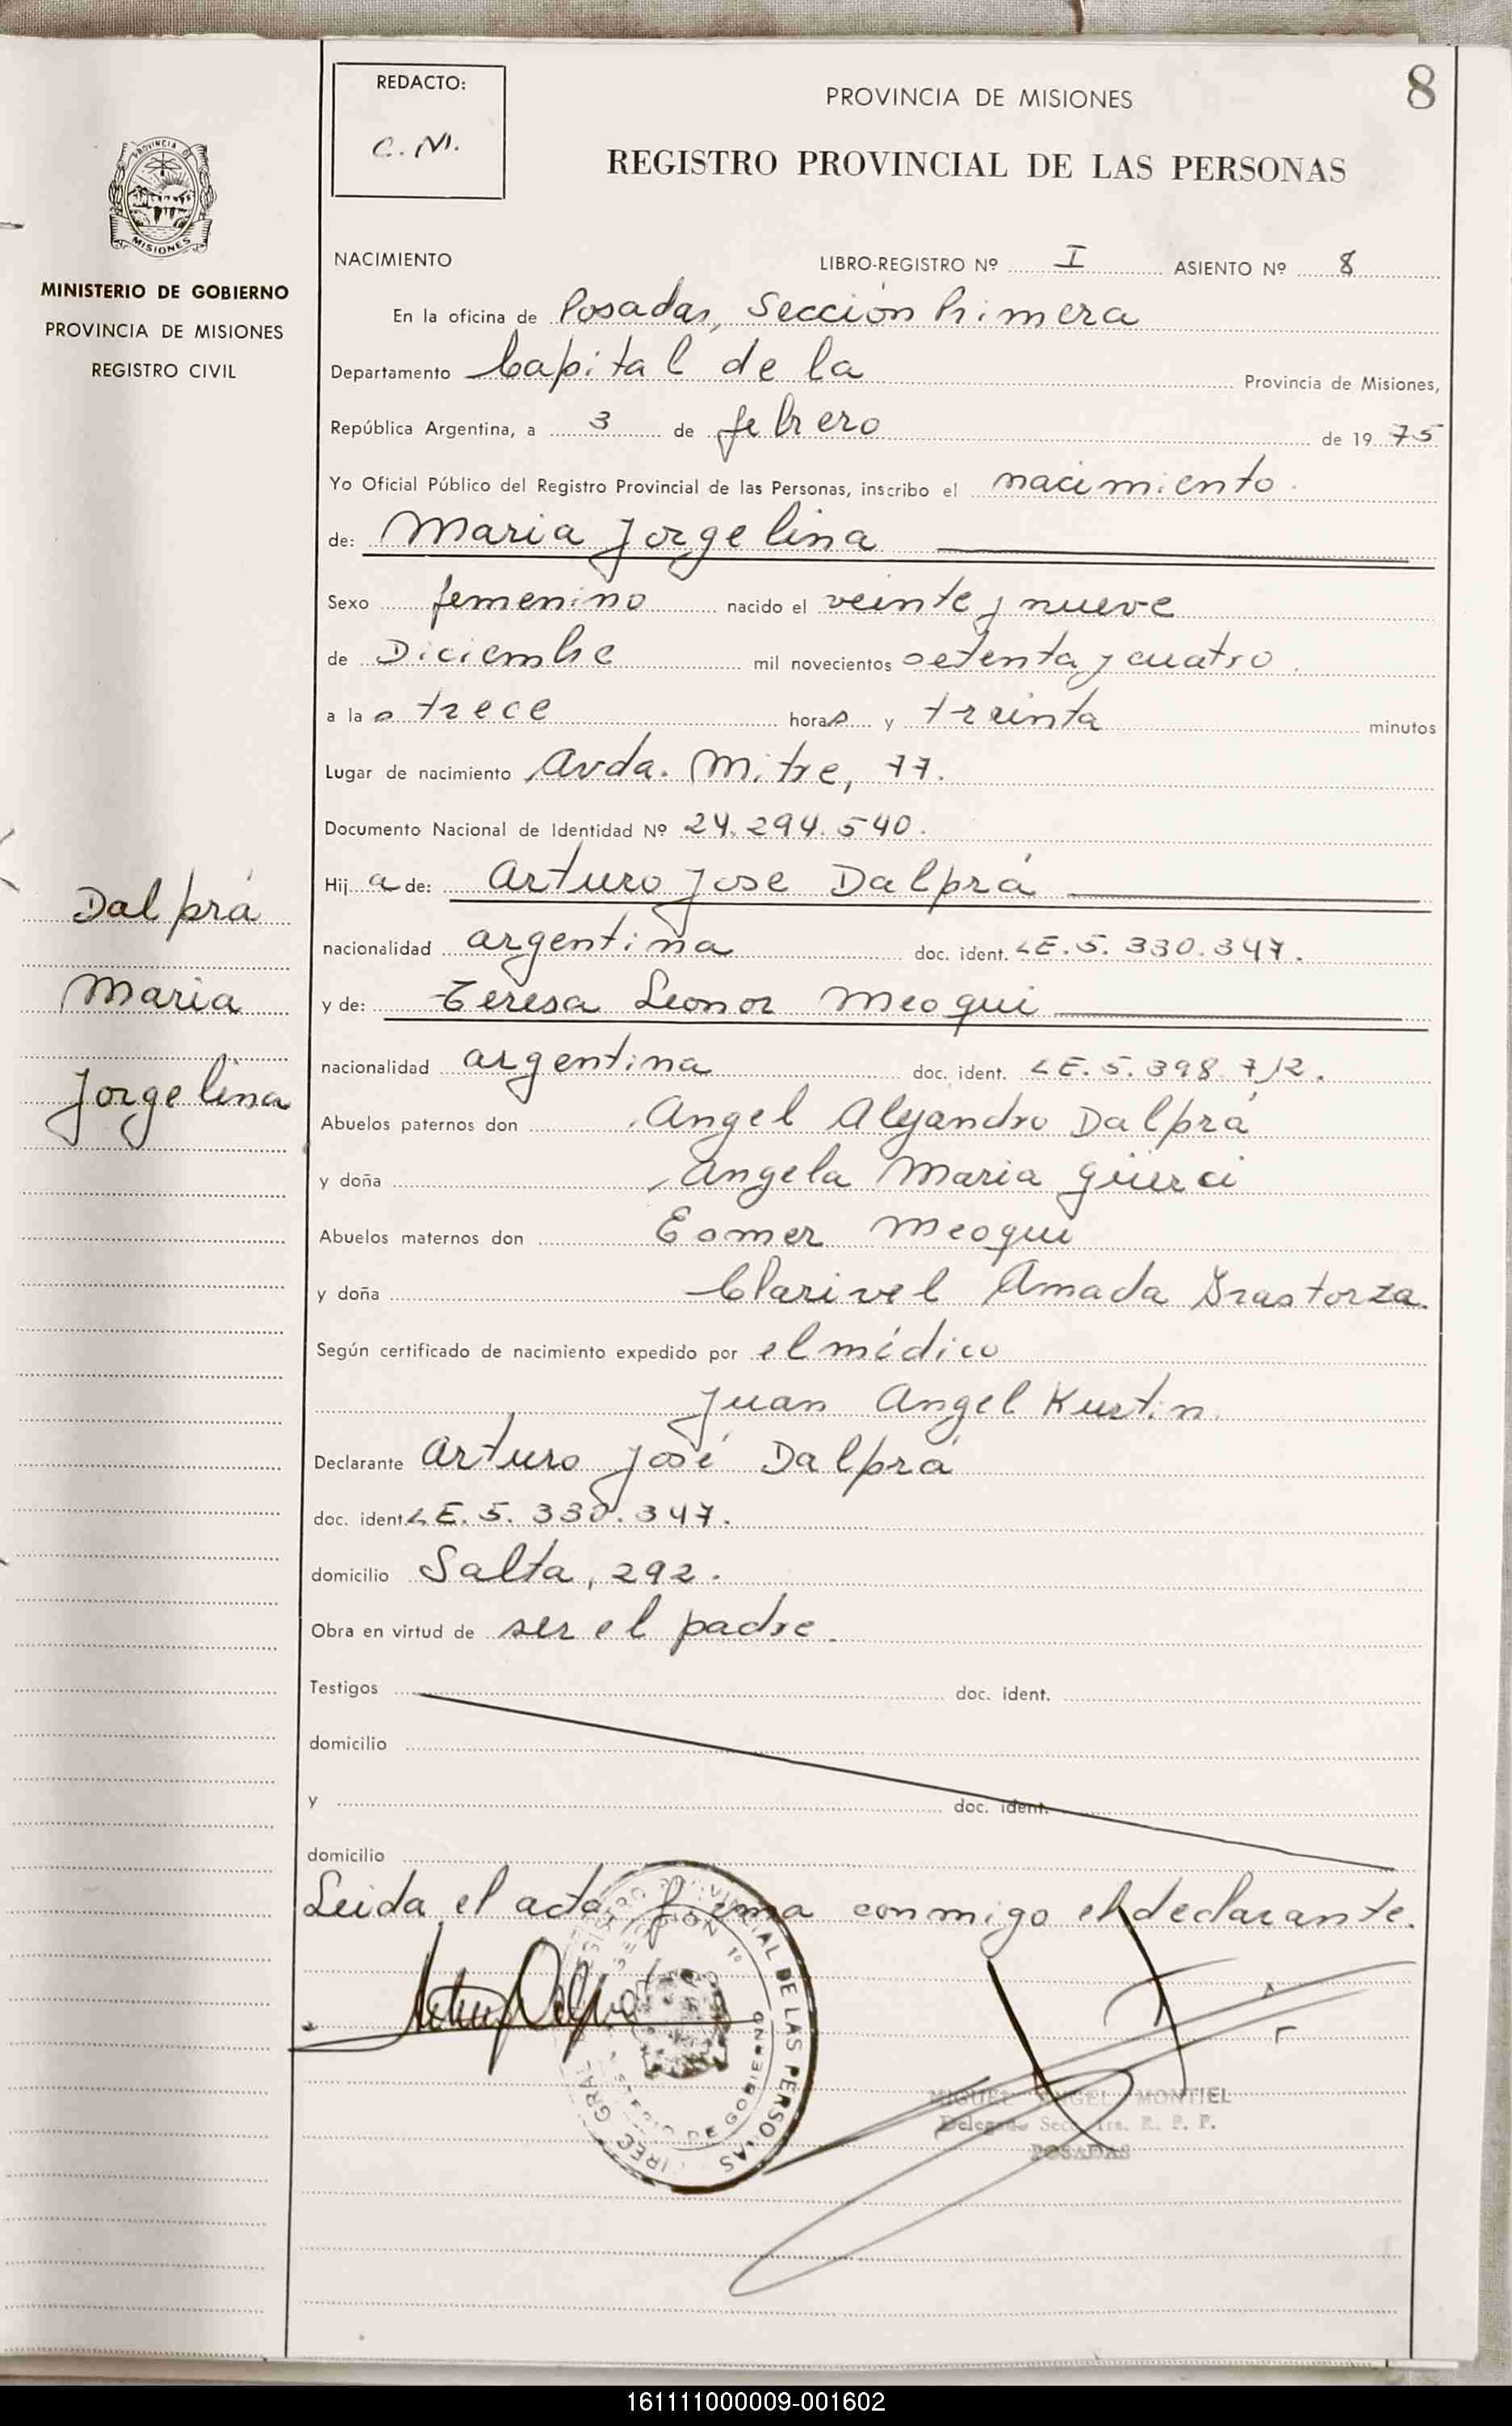 8
REDACTO:
C. M.
PROVINCIA DE MISIONES
REGISTRO PROVINCIAL DE LAS PERSONAS
PROVINCIA DE
MISIONES
MINISTERIO DE GOBIERNO
PROVINCIA DE MISIONES
REGISTRO CIVIL
NACIMIENTO LIBRO-REGISTRO Nº I ASIENTO Nº 8
En la oficina de Posadas, Sección Primera
Departamento Capital de la Provincia de Misiones,
República Argentina, a 3 de febrero de 1975
Yo Oficial Público del Registro Provincial de las Personas, inscribo el nacimiento.
de: Maria Jorgelina
Sexo femenino nacido el veinte y nueve
de Diciembre mil novecientos setenta y cuatro.
a las trece horas y treinta minutos
Lugar de nacimiento Avda. Mitre, 77.
Documento Nacional de Identidad Nº 24.294.540.
Hija de: Arturo Jose Dalprá
nacionalidad argentina doc. ident. LE. 5. 330.347.
y de: Teresa Leonor Meoqui
nacionalidad argentina doc. ident. LE. 5. 398.712.
Abuelos paternos don Angel Alejandro Dalprá
y doña Angela Maria Güerci
Abuelos maternos don Eomer Meoqui
y doña Clarivel Amada Irastorza.
Según certificado de nacimiento expedido por el médico
Juan Angel Kustin.
Declarante Arturo José Dalprá
doc. ident. LE. 5. 330.347.
domicilio Salta, 292.
Obra en virtud de ser el padre.
Testigos doc. ident.
domicilio
y doc. ident.
domicilio
Leida el acta, firma conmigo el declarante.
Dalprá
Maria
Jorgelina
REGISTRO PROVINCIAL DE LAS PERSONAS
SECCION 1º
DE GOBIERNO
DIREC. GRAL
MIGUEL ANGEL MONTIEL
Delegado Secc. 1ra. R. P. P.
POSADAS
161111000009-001602